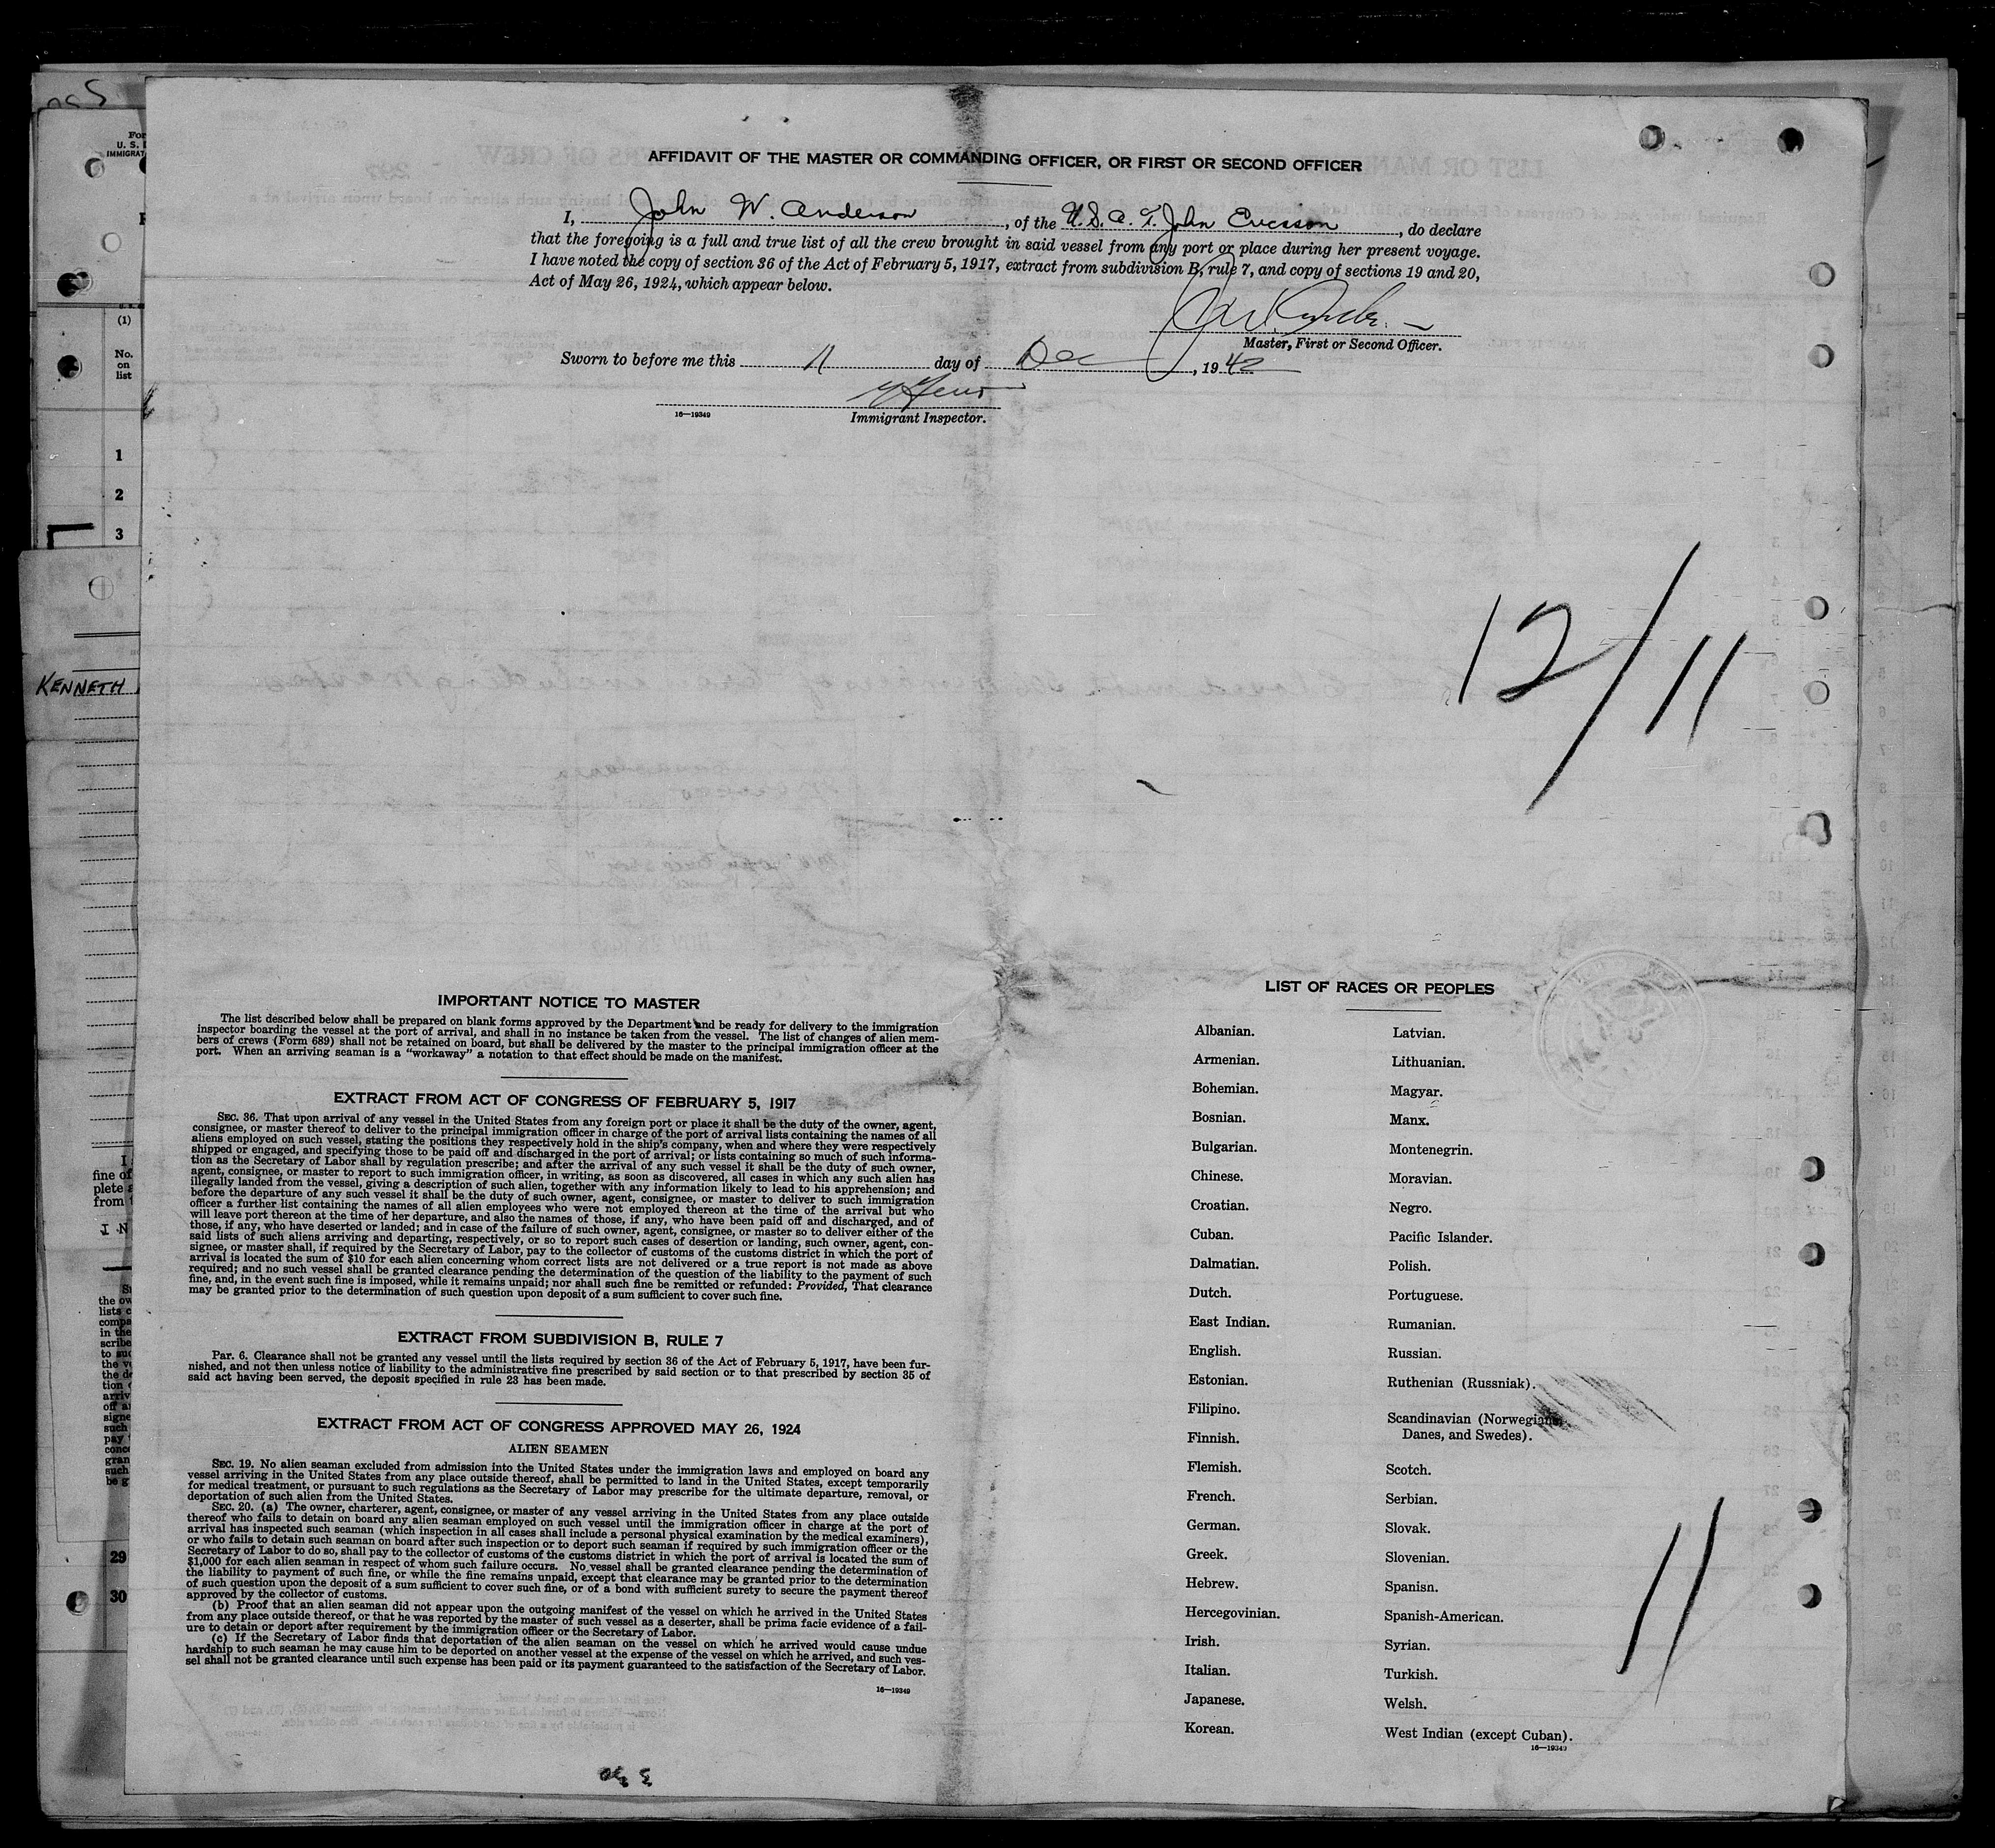 AFFIDAVIT OF THE MASTER OR COMMANDING OFFICER, OR FIRST OR SECOND OFFICER
I, John W. Anderson, of the U.S.A.T. John Ericsson, do declare
that the foregoing is a full and true list of all the crew brought in said vessel from any port or place during her present voyage.
I have noted the copy of section 36 of the Act of February 5, 1917, extract from subdivision B, rule 7, and copy of sections 19 and 20,
Act of May 26, 1924, which appear below.
Master, First or Second Officer.
Sworn to before me this 11 day of Dec, 1942
16—19349
Immigrant Inspector.
12/11
KENNETH
IMPORTANT NOTICE TO MASTER
The list described below shall be prepared on blank forms approved by the Department and be ready for delivery to the immigration
inspector boarding the vessel at the port of arrival, and shall in no instance be taken from the vessel. The list of changes of alien mem-
bers of crews (Form 689) shall not be retained on board, but shall be delivered by the master to the principal immigration officer at the
port. When an arriving seaman is a “workaway” a notation to that effect should be made on the manifest.
EXTRACT FROM ACT OF CONGRESS OF FEBRUARY 5, 1917
SEC. 36. That upon arrival of any vessel in the United States from any foreign port or place it shall be the duty of the owner, agent,
consignee, or master thereof to deliver to the principal immigration officer in charge of the port of arrival lists containing the names of all
aliens employed on such vessel, stating the positions they respectively hold in the ship’s company, when and where they were respectively
shipped or engaged, and specifying those to be paid off and discharged in the port of arrival; or lists containing so much of such informa-
tion as the Secretary of Labor shall by regulation prescribe; and after the arrival of any such vessel it shall be the duty of such owner,
agent, consignee, or master to report to such immigration officer, in writing, as soon as discovered, all cases in which any such alien has
illegally landed from the vessel, giving a description of such alien, together with any information likely to lead to his apprehension; and
before the departure of any such vessel it shall be the duty of such owner, agent, consignee, or master to deliver to such immigration
officer a further list containing the names of all alien employees who were not employed thereon at the time of the arrival but who
will leave port thereon at the time of her departure, and also the names of those, if any, who have been paid off and discharged, and of
those, if any, who have deserted or landed; and in case of the failure of such owner, agent, consignee, or master so to deliver either of the
said lists of such aliens arriving and departing, respectively, or so to report such cases of desertion or landing, such owner, agent, con-
signee, or master shall, if required by the Secretary of Labor, pay to the collector of customs of the customs district in which the port of
arrival is located the sum of $10 for each alien concerning whom correct lists are not delivered or a true report is not made as above
required; and no such vessel shall be granted clearance pending the determination of the question of the liability to the payment of such
fine, and, in the event such fine is imposed, while it remains unpaid; nor shall such fine be remitted or refunded: Provided, That clearance
may be granted prior to the determination of such question upon deposit of a sum sufficient to cover such fine.
EXTRACT FROM SUBDIVISION B, RULE 7
Par. 6. Clearance shall not be granted any vessel until the lists required by section 36 of the Act of February 5, 1917, have been fur-
nished, and not then unless notice of liability to the administrative fine prescribed by said section or to that prescribed by section 35 of
said act having been served, the deposit specified in rule 23 has been made.
EXTRACT FROM ACT OF CONGRESS APPROVED MAY 26, 1924
ALIEN SEAMEN
SEC. 19. No alien seaman excluded from admission into the United States under the immigration laws and employed on board any
vessel arriving in the United States from any place outside thereof, shall be permitted to land in the United States, except temporarily
for medical treatment, or pursuant to such regulations as the Secretary of Labor may prescribe for the ultimate departure, removal, or
deportation of such alien from the United States.
SEC. 20. (a) The owner, charterer, agent, consignee, or master of any vessel arriving in the United States from any place outside
thereof who fails to detain on board any alien seaman employed on such vessel until the immigration officer in charge at the port of
arrival has inspected such seaman (which inspection in all cases shall include a personal physical examination by the medical examiners),
or who fails to detain such seaman on board after such inspection or to deport such seaman if required by such immigration officer or the
Secretary of Labor to do so, shall pay to the collector of customs of the customs district in which the port of arrival is located the sum of
$1,000 for each alien seaman in respect of whom such failure occurs. No vessel shall be granted clearance pending the determination of
the liability to payment of such fine, or while the fine remains unpaid, except that clearance may be granted prior to the determination
of such question upon the deposit of a sum sufficient to cover such fine, or of a bond with sufficient surety to secure the payment thereof
approved by the collector of customs.
(b) Proof that an alien seaman did not appear upon the outgoing manifest of the vessel on which he arrived in the United States
from any place outside thereof, or that he was reported by the master of such vessel as a deserter, shall be prima facie evidence of a fail-
ure to detain or deport after requirement by the immigration officer or the Secretary of Labor.
(c) If the Secretary of Labor finds that deportation of the alien seaman on the vessel on which he arrived would cause undue
hardship to such seaman he may cause him to be deported on another vessel at the expense of the vessel on which he arrived, and such ves-
sel shall not be granted clearance until such expense has been paid or its payment guaranteed to the satisfaction of the Secretary of Labor.
16—19349
LIST OF RACES OR PEOPLES
Albanian.
Armenian.
Bohemian.
Bosnian.
Bulgarian.
Chinese.
Croatian.
Cuban.
Dalmatian.
Dutch.
East Indian.
English.
Estonian.
Filipino.
Finnish.
Flemish.
French.
German.
Greek.
Hebrew.
Hercegovinian.
Irish.
Italian.
Japanese.
Korean.
Latvian.
Lithuanian.
Magyar.
Manx.
Montenegrin.
Moravian.
Negro.
Pacific Islander.
Polish.
Portuguese.
Rumanian.
Russian.
Ruthenian (Russniak).
Scandinavian (Norwegians,
Danes, and Swedes).
Scotch.
Serbian.
Slovak.
Slovenian.
Spanish.
Spanish-American.
Syrian.
Turkish.
Welsh.
West Indian (except Cuban).
16—19349
11